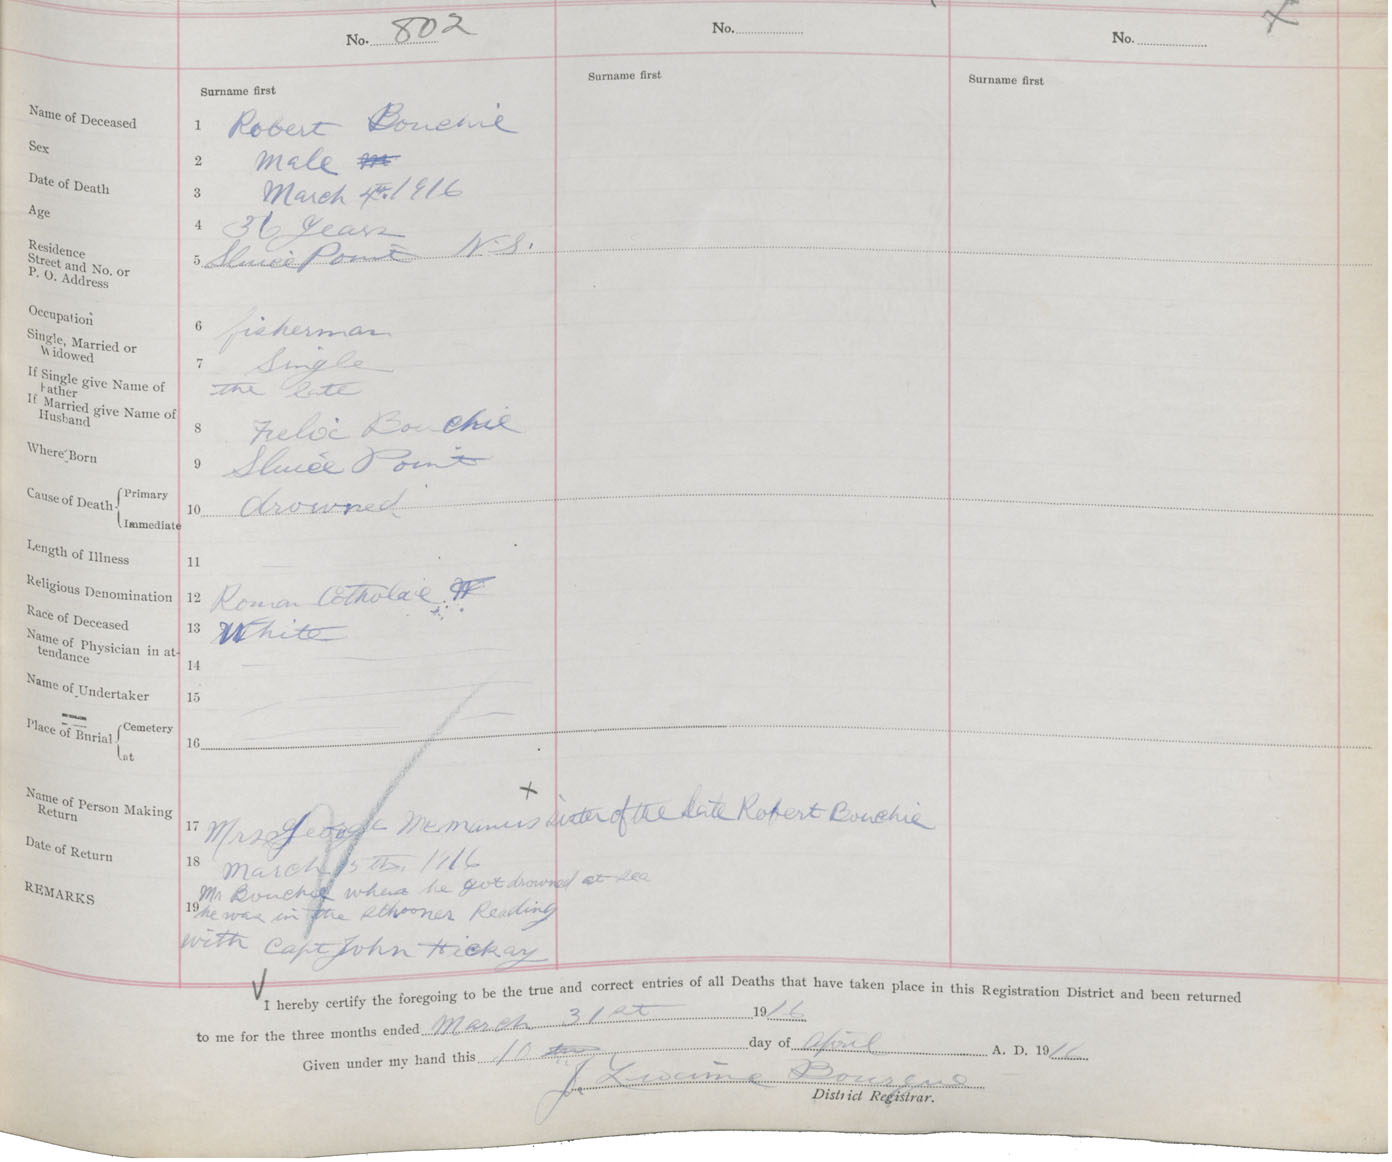 No. 802 No. No.
Surname first Surname first Surname first
Name of Deceased 1 Robert Bouchie
Sex 2 Male
Date of Death 3 March 4th. 1916
Age 4 36 years
Residence
Street and No. or
P. O. Address 5 Sluice Point N.S.
Occupation 6 fisherman
Single, Married or
Widowed 7 Single
If Single give Name of
Father the late
If Married give Name of
Husband 8 Bouchie
Where Born 9 Sluice Point
Cause of Death Primary
Immediate 10 drowned
Length of Illness 11
Religious Denomination 12 Roman Catholic
Race of Deceased 13 White
Name of Physician in at-
tendance 14
Name of Undertaker 15
Place of Burial Cemetery
at 16
Name of Person Making
Return 17 Mrs George McManus sister of the late Robert Bouchie
Date of Return 18 March 1916
REMARKS 19 Mr Bouchie when he got drowned at sea
he was in the schooner Reading
with Capt John Hickay
I hereby certify the foregoing to be the true and correct entries of all Deaths that have taken place in this Registration District and been returned
to me for the three months ended March 31st 1916
Given under my hand this 10 day of April A. D. 1916
J.
District Registrar.